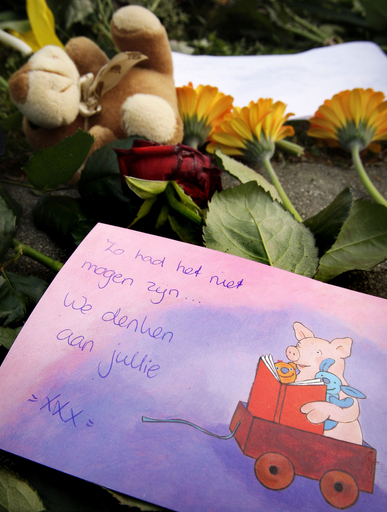 Zo had het niet
mogen zijn...
We denken
aan jullie
=XXX=